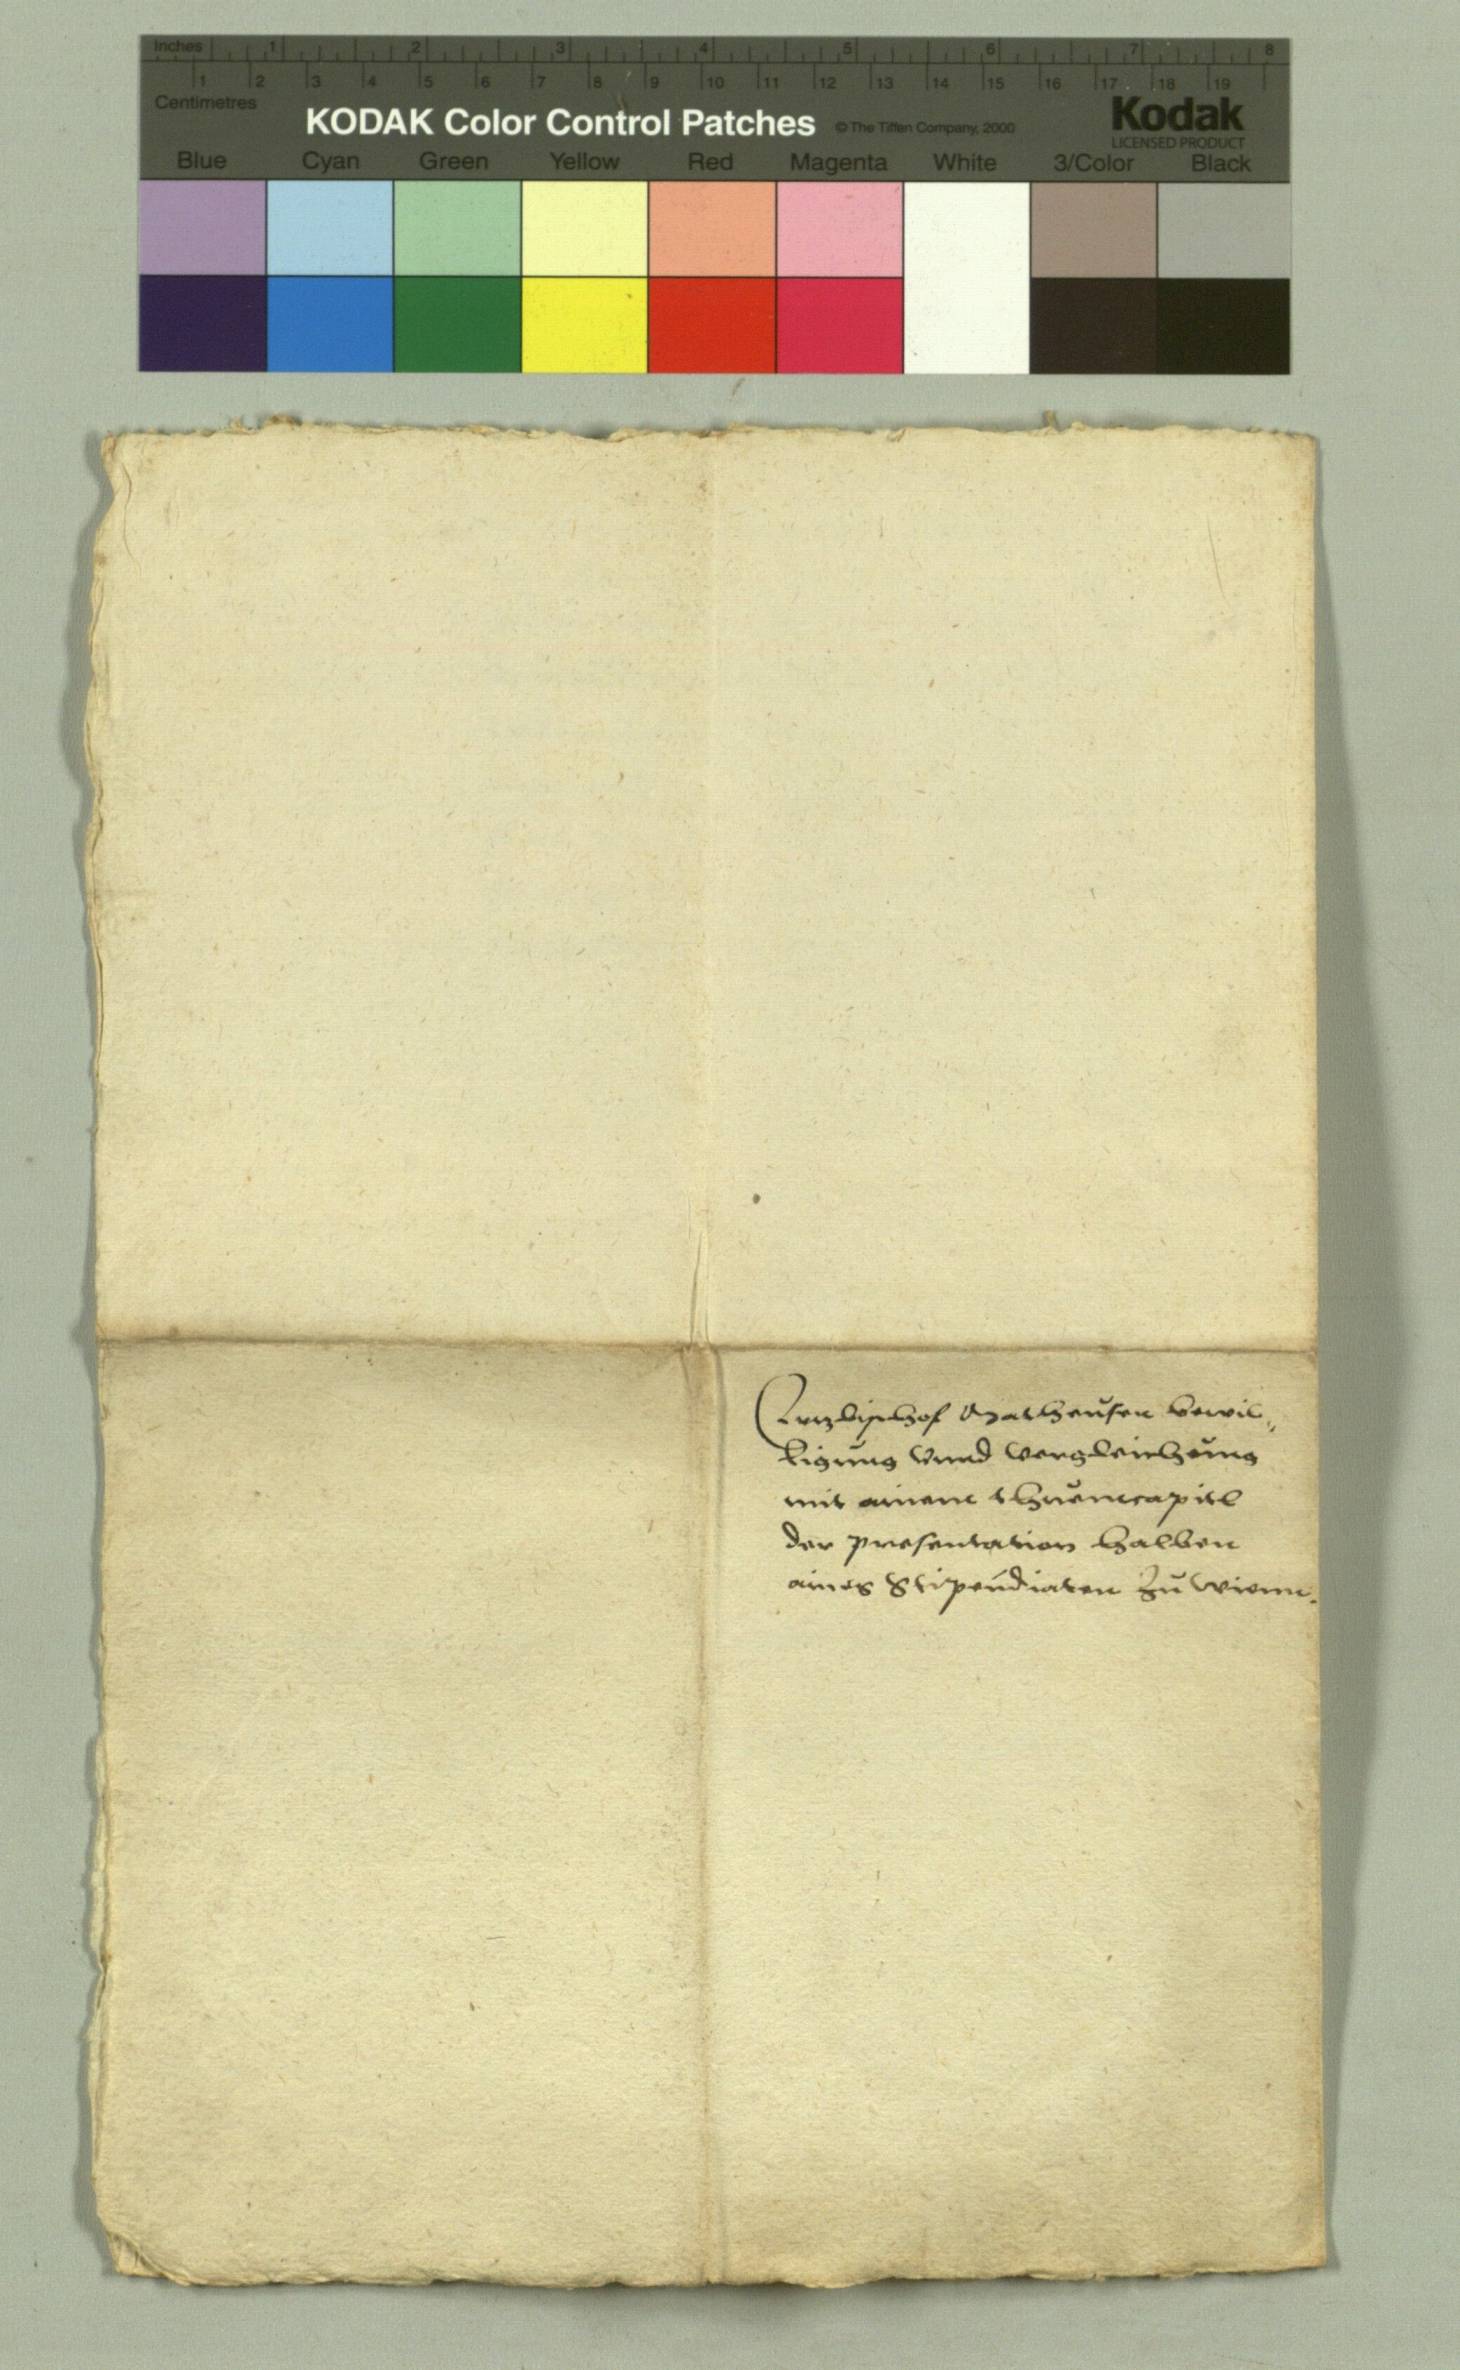 Inches 1 2 3 4 5 6 7 8
1 2 3 4 5 6 7 8 9 10 11 12 13 14 15 16 17 18 19
Centimetres
KODAK Color Control Patches © The Tiffen Company, 2000 Kodak
LICENSED PRODUCT
Blue Cyan Green Yellow Red Magenta White 3/Color Black
Ertzbischof Matheusen bewil„
ligung vnnd vergleichung
mit ainem thuemcapitl
der presentation halben
aines Stipendiaten zu wienn.